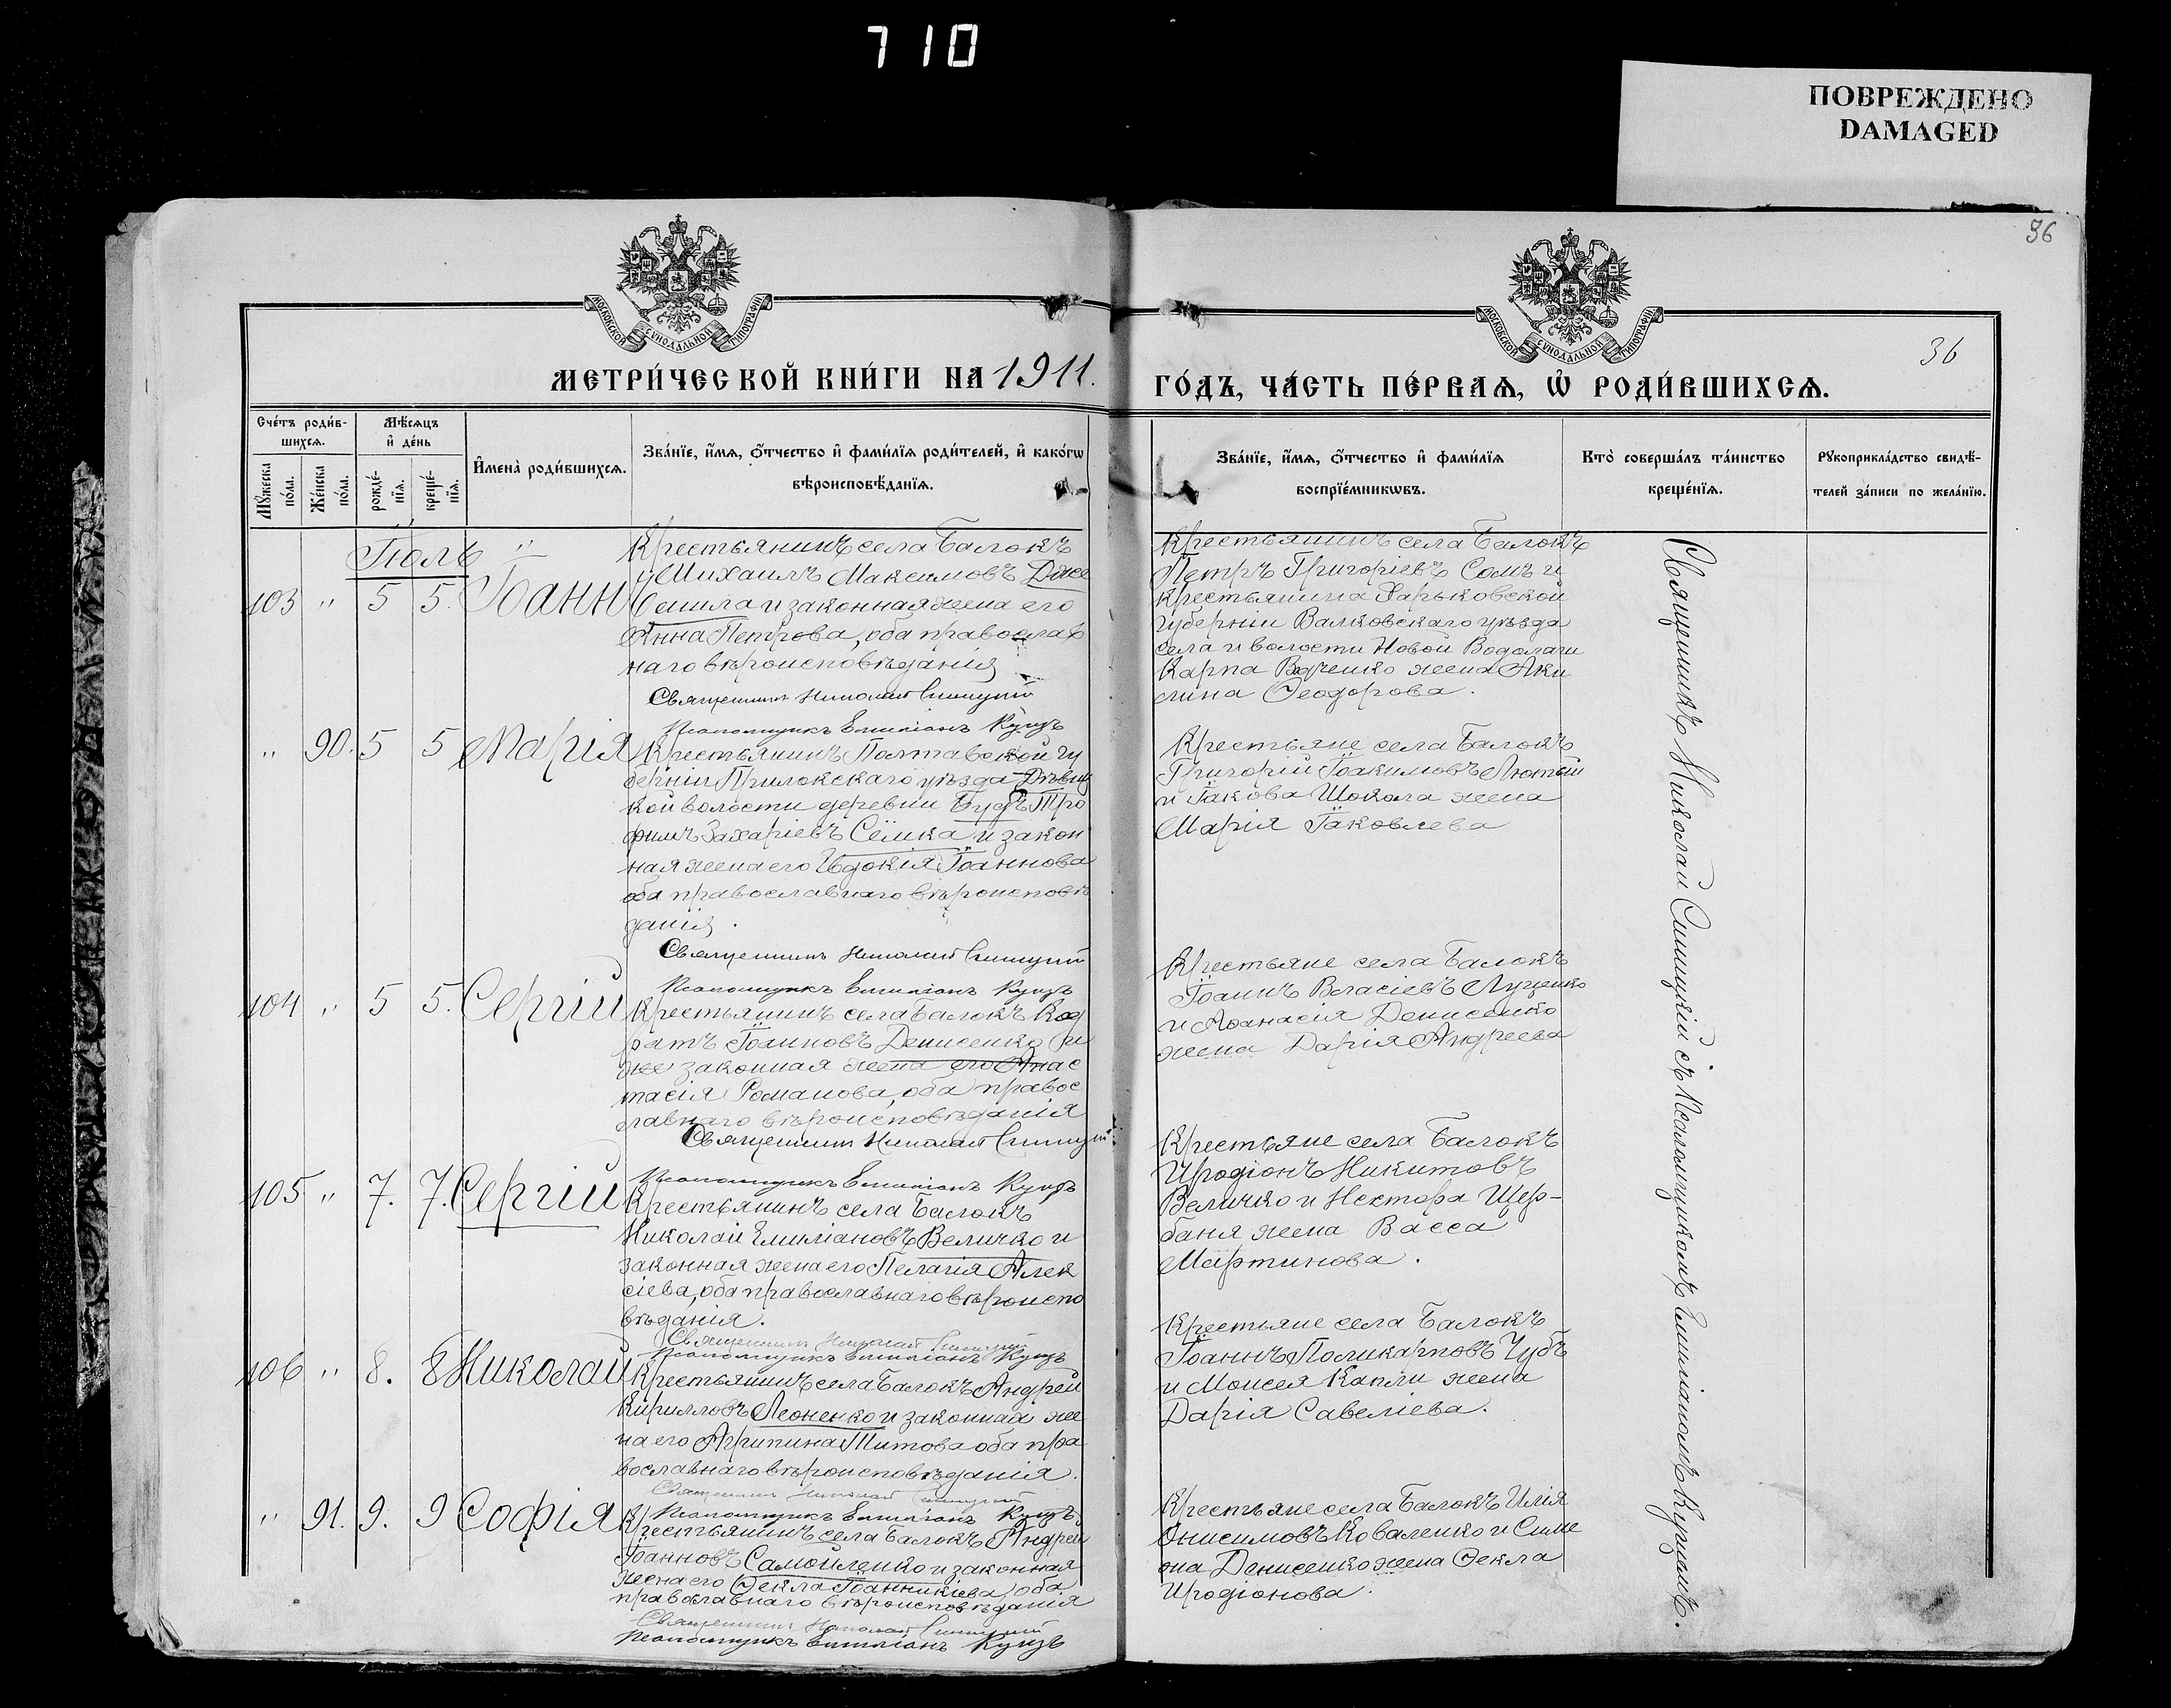 710
ПОВРЕЖДЕНО
DAMAGED
36
МОСКОВСКОЙ СУНОДАЛЬНОЙ ТИПОГРАФІИ
МОСКОВСКОЙ СУНОДАЛЬНОЙ ТИПОГРАФІИ
36
МЕТРИ́ЧЕСКОЙ КНИ́ГИ НА 1911.
ГО́ДЪ, ЧА́СТЬ ПЕ́РВАѦ, Ѡ҆ РОДИ́ВШИХСѦ.
Сче́тъ роди́в-
шихсѧ.
Мꙋ́жеска
по́ла.
Же́нска
по́ла.
Мѣ́сѧцъ
и҆ де́нь
рожде́-
нїѧ.
креще́-
нїѧ.
И҆мена̀ роди́вшихсѧ.
Зва́нїе, и҆́мѧ, ѻ҆́тчество и҆ фами́лїѧ роди́телей, и҆ како́гѡ
вѣроисповѣ́данїѧ.
Зва́нїе, и҆́мѧ, ѻ҆́тчество и҆ фами́лїѧ
воспрїе́мникѡвъ.
Кто̀ соверша́лъ та́инство
креще́нїѧ.
Рꙋкоприкла́дство свидѣ́-
телей за́писи по жела́нїю.
Іюль
103 " 5 5. Іоаннъ
Крестьянинъ села Балокъ
Михаилъ Максимовъ
и законная жена его
Анна Петрова, оба православ
наго вѣроисповѣданія
Священникъ Николай Синицкій
Псаломщикъ Емиліанъ Куцъ
Крестьянинъ села Балокъ
Петръ Григоріевъ Сомъ и
крестьянина Харьковской
губерніи Валковскаго уѣзда
села и волости Новой Водолаги
Карпа жена Аки
лина Ѳеодорова.
" 90. 5 5 Марія
Крестьянинъ Полтавской гу
берніи Прилокскаго уѣзда Дѣвиц
кой волости деревни Будъ Тро
фимъ Захаріевъ Сёмка и закон
ная жена его Евдокія Іоаннова
оба православнаго вѣроисповѣ
данія.
Священникъ Николай Синицкій
Псаломщикъ Емиліанъ Куцъ
Крестьяне села Балокъ
Григорій Іоакимовъ Лютый
и Іакова Шокала жена
Марія Іаковлева
104 " 5 5. Сергій
Крестьянинъ села Балокъ Код
ратъ Іоанновъ Денисенко и
законная жена его Анас
тасія Романова, оба правос
лавнаго вѣроисповѣданія
Священникъ Николай Синицкій
Псаломщикъ Емиліанъ Куцъ
Крестьяне села Балокъ
Іоаннъ Власіевъ Луценко
и Аѳанасія Денисенко
жена Дарія Андреева
105 " 7. 7. Сергій
Крестьянинъ села Балокъ
Николай Емиліановъ Величко и
законная жена его Пелагія Алек
сіева, оба православнаго вѣроиспо
вѣданія.
Священникъ Николай Синицкій
Псаломщикъ Емиліанъ Куцъ
Крестьяне села Балокъ
Иродіонъ Никитовъ
Величко и Нестора Щер-
баня жена Васса
Мартинова.
106 " 8. 8 Николай
Крестьянинъ села Балокъ Андрей
Кирилловъ Леоненко и законная же
на его Агрипина Титова оба пра
вославнаго вѣроисповѣданія.
Священникъ Николай Синицкій
Псаломщикъ Емиліанъ Куцъ
Крестьяне села Балокъ
Іоаннъ Поликарповъ Чубъ
и Моисея Капли жена
Дарія Савеліева.
" 91. 9. 9 Софія
Крестьянинъ села Балокъ Андрей
Іоанновъ Самойленко и законная
жена его Ѳекла Іоанникіева, оба
православнаго вѣроисповѣданія
Священникъ Николай Синицкій
Псаломщикъ Емиліанъ Куцъ
Крестьяне села Балокъ Илія
Онисимовъ Коваленко и Симе
она Денисенко жена Ѳекла
Иродіонова.
Священникъ Николай Синицкій съ Псаломщикомъ Емиліаномъ Куцымъ.